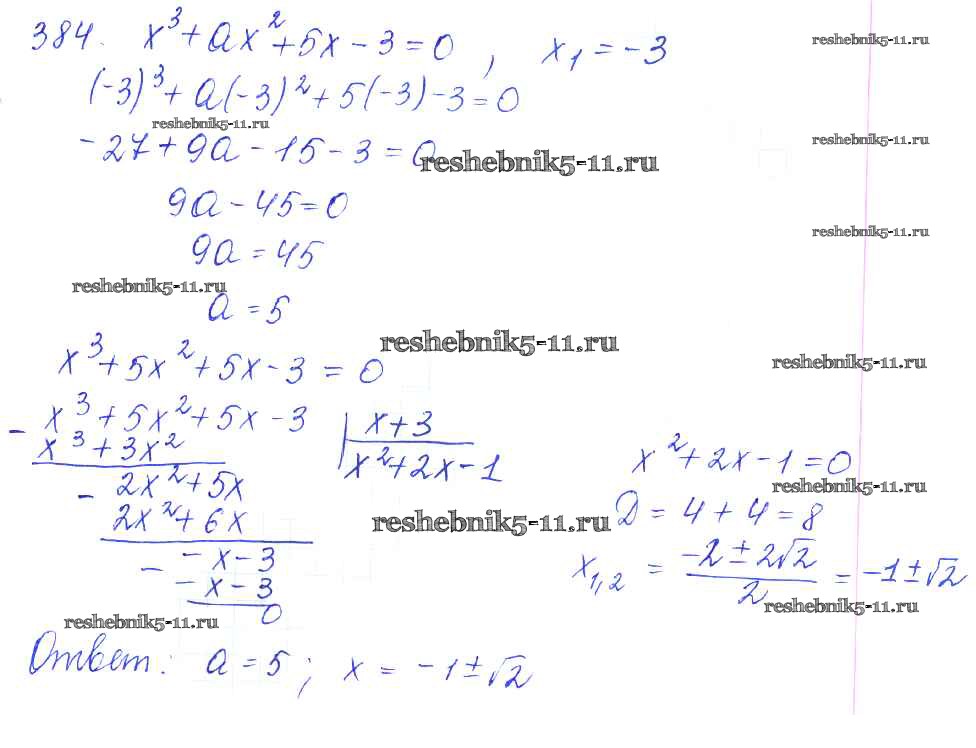 384. x³ + ax² + 5x − 3 = 0, x₁ = −3
reshebnik5-11.ru
(-3)³ + a(-3)² + 5(-3) − 3 = 0
reshebnik5-11.ru
−27 + 9a − 15 − 3 = 0
reshebnik5-11.ru
reshebnik5-11.ru
9a − 45 = 0
reshebnik5-11.ru
9a = 45
reshebnik5-11.ru
a = 5
reshebnik5-11.ru
x³ + 5x² + 5x − 3 = 0
reshebnik5-11.ru
− x³ + 5x² + 5x − 3 | x + 3
x³ + 3x² | x² + 2x − 1
− 2x² + 5x
2x² + 6x
− − x − 3
− x − 3
0
x² + 2x − 1 = 0
reshebnik5-11.ru
D = 4 + 4 = 8
reshebnik5-11.ru
x₁,₂ = (−2 ± 2√2)/2 = −1 ± √2
reshebnik5-11.ru
reshebnik5-11.ru
Ответ: a = 5; x = −1 ± √2